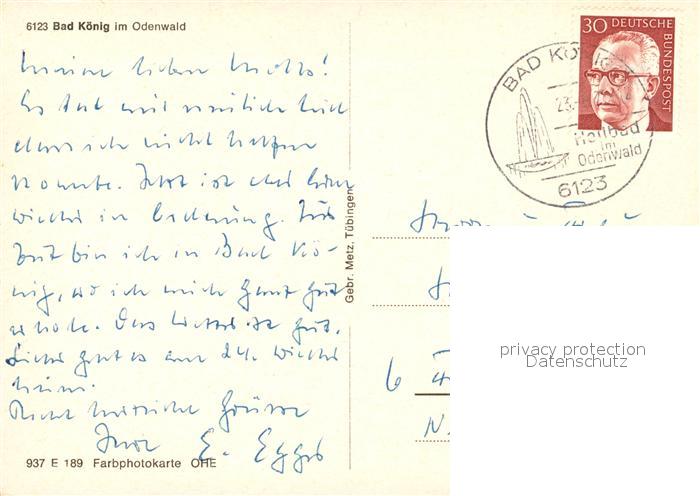 6123 Bad König im Odenwald
Meine lieben
Es tut mir wirklich leid
dass ich nicht helfen
konnte. Jetzt ist das
wieder in Ordnung. Zur
Zeit bin ich in Bad Kö-
nig, wo ich mich ganz gut
erhole. Das Wetter ist gut.
geht es am 24. wieder
heim.
Recht herzliche Grüsse
Ihre E.
937 E 189 Farbphotokarte OHE
Gebr. Metz, Tübingen
30 DEUTSCHE BUNDESPOST
BAD KÖNIG
23.
Heilbad
im
Odenwald
6123
6
privacy protection
Datenschutz